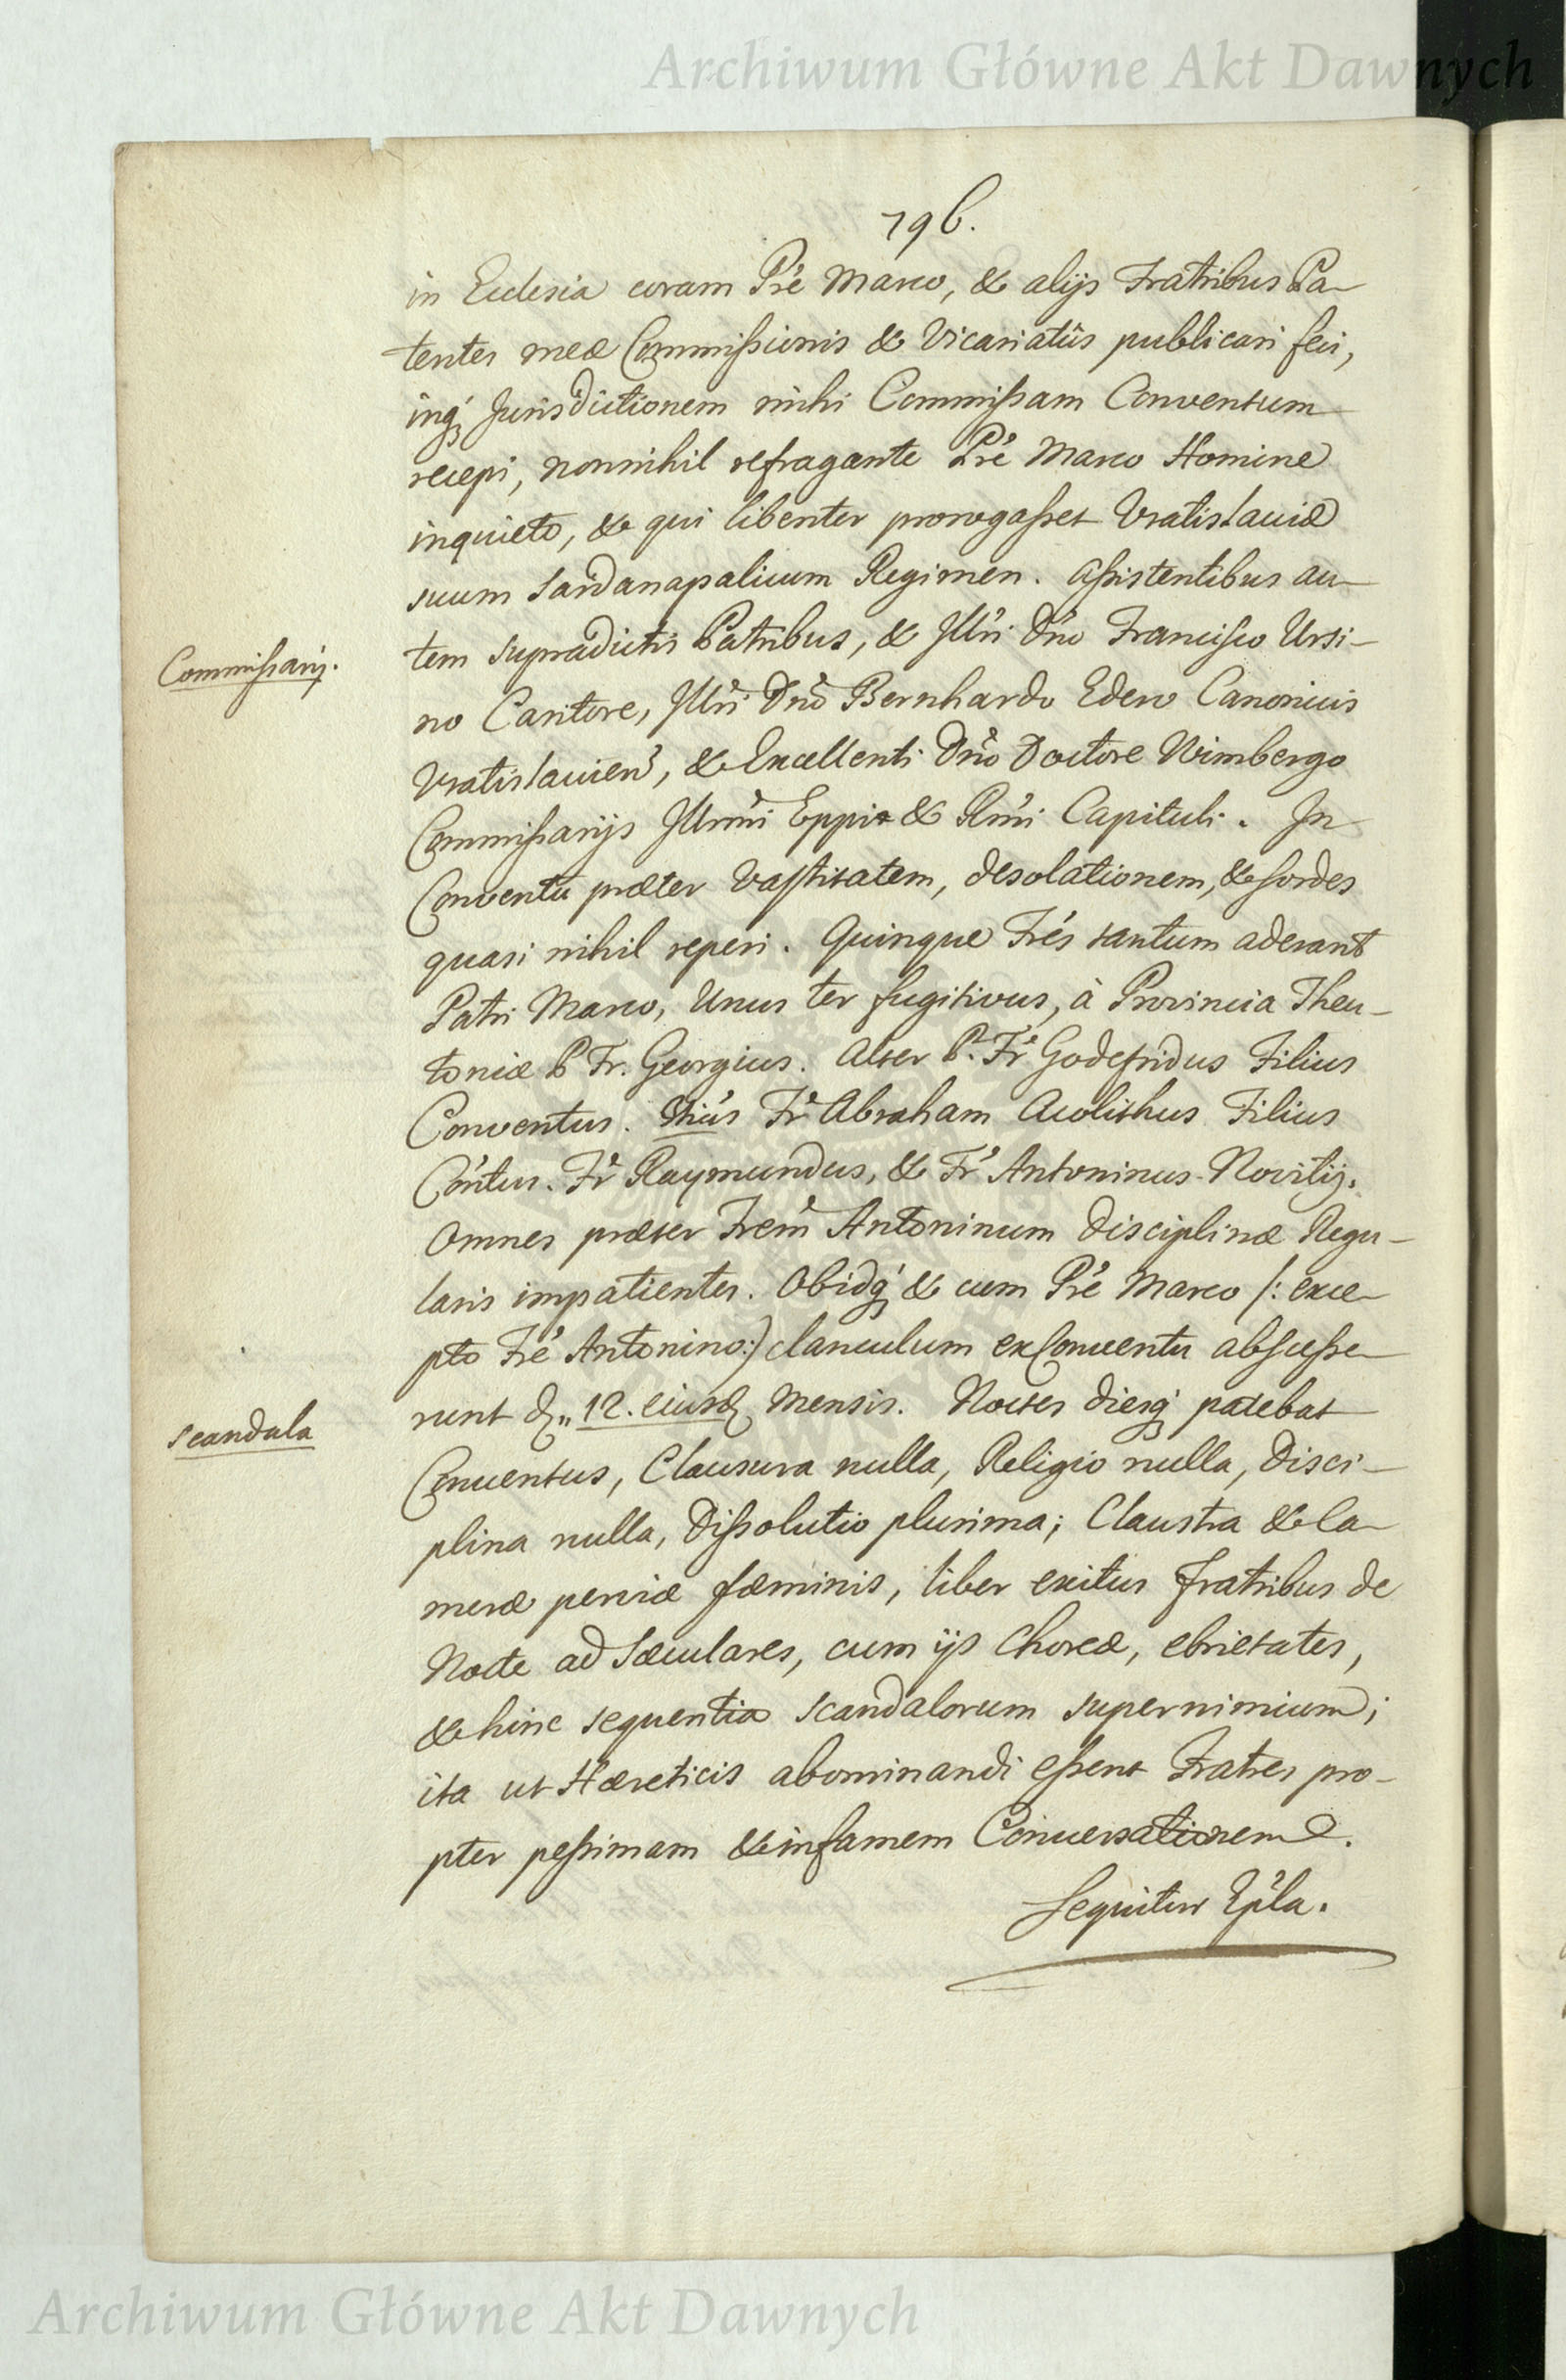 Archiwum Główne Akt Dawnych
796.
in Ecclesia coram Prẽ Marco, & alijs Fratribus Pa-
tentes meæ Commißionis & Vicariatûs publicari feci,
inq́; Jurisdictionem mihi Commißam Conventum
recepi, nonnihil refragante Prẽ Marco Homine
inquieto, & qui libenter prorogaßet Vratislauiæ
suum Sardanapalicum Regimen. Aßistentibus au-
tem supradictis Patribus, & Jllr̃i Dño Francisco Ursi-
Commißarij.
no Cantore, Jllr̃i Dño Bernhardo Edero Canonicis
Vratislauien̓, & Excellenti Dño Doctore Wimbergo
Commißarijs Jllmi Eppi & Rm̃i Capituli. Jn
Conventu præter Vastitatem, desolationem, & sordes
quasi nihil reperi. Quinque Frẽs tantum aderant
Patri Marco, Unus ter fugitivus, à Provincia Theu-
toniæ P Fr. Georgius. Alter P. Fr̃ Godefridus Filius
Conventus. 3tiús Fr̃ Abraham Acolithus Filius
Cóntus. Fr̃ Raymundus, & Fr̃ Antoninus Novitij.
Omnes præter Frem̃ Antoninum Disciplinæ Regu-
laris impatientes. Obidq́; & cum Prẽ Marco /: exce-
pto Frẽ Antonino:) clanculum ex Conventu abscesse-
runt d. 12. eiusd. Mensis. Noctes diesq́; patebat
scandala
Conuentus, Clausura nulla, Religio nulla, Disci-
plina nulla, Dißolutio plurima; Claustra & Ca-
meræ perviæ fæminis, liber exitus fratribus de
Nocte ad Sæculares, cum ijs Choreæ, ebrietates,
& hinc sequentia scandalorum supernimium;
ita ut Hæreticis abominandi eßent Fratres pro-
pter peßimam & infamem Conuersationem.
Sequitur Epĩla.
Archiwum Główne Akt Dawnych